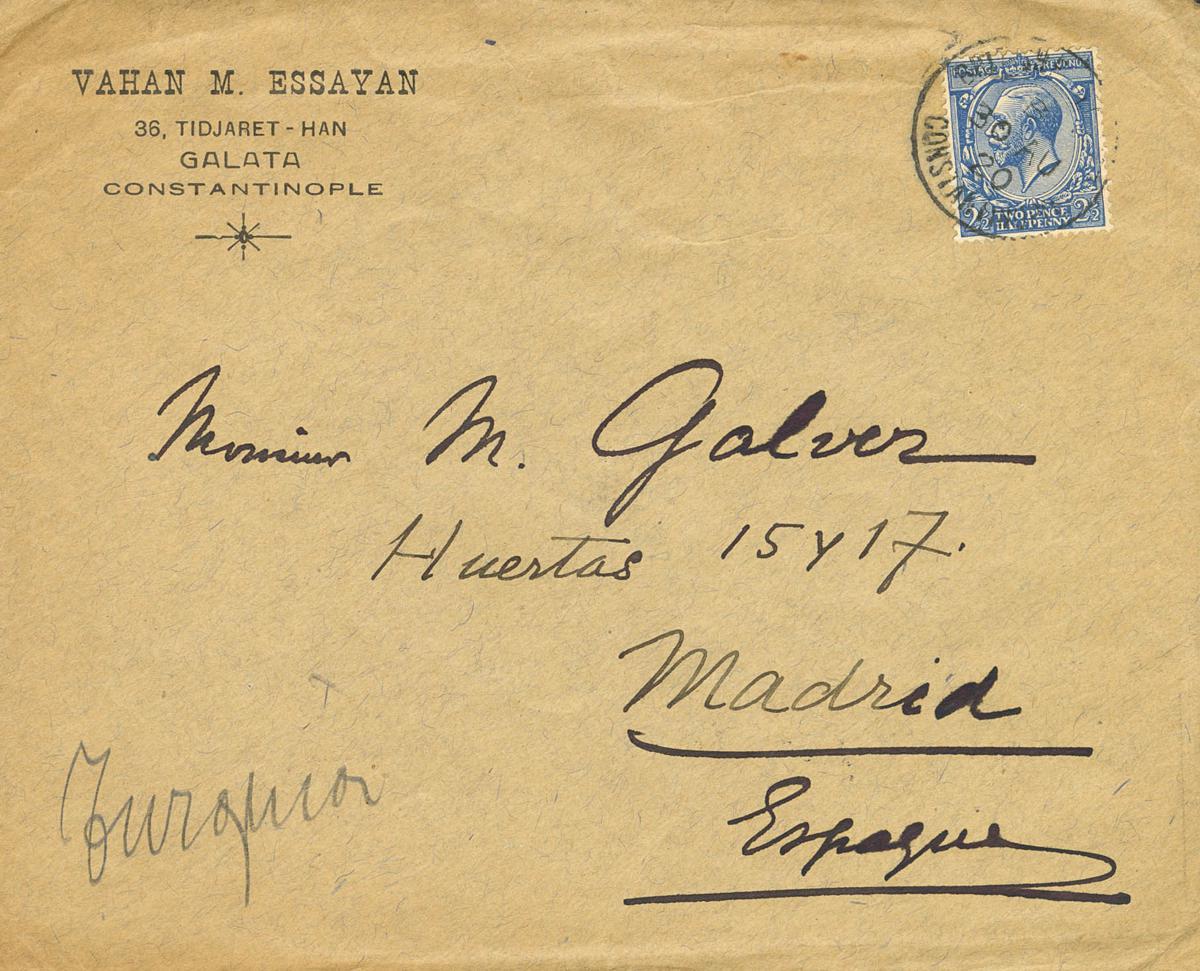 VAHAN M. ESSAYAN
36, TIDJARET-HAN
GALATA
CONSTANTINOPLE
POSTAGE REVENUE
2½ TWO PENCE HALFPENNY 2½
Monsieur M. Galvez
Huertas 15 y 17.
Madrid
Espagne
Turquia